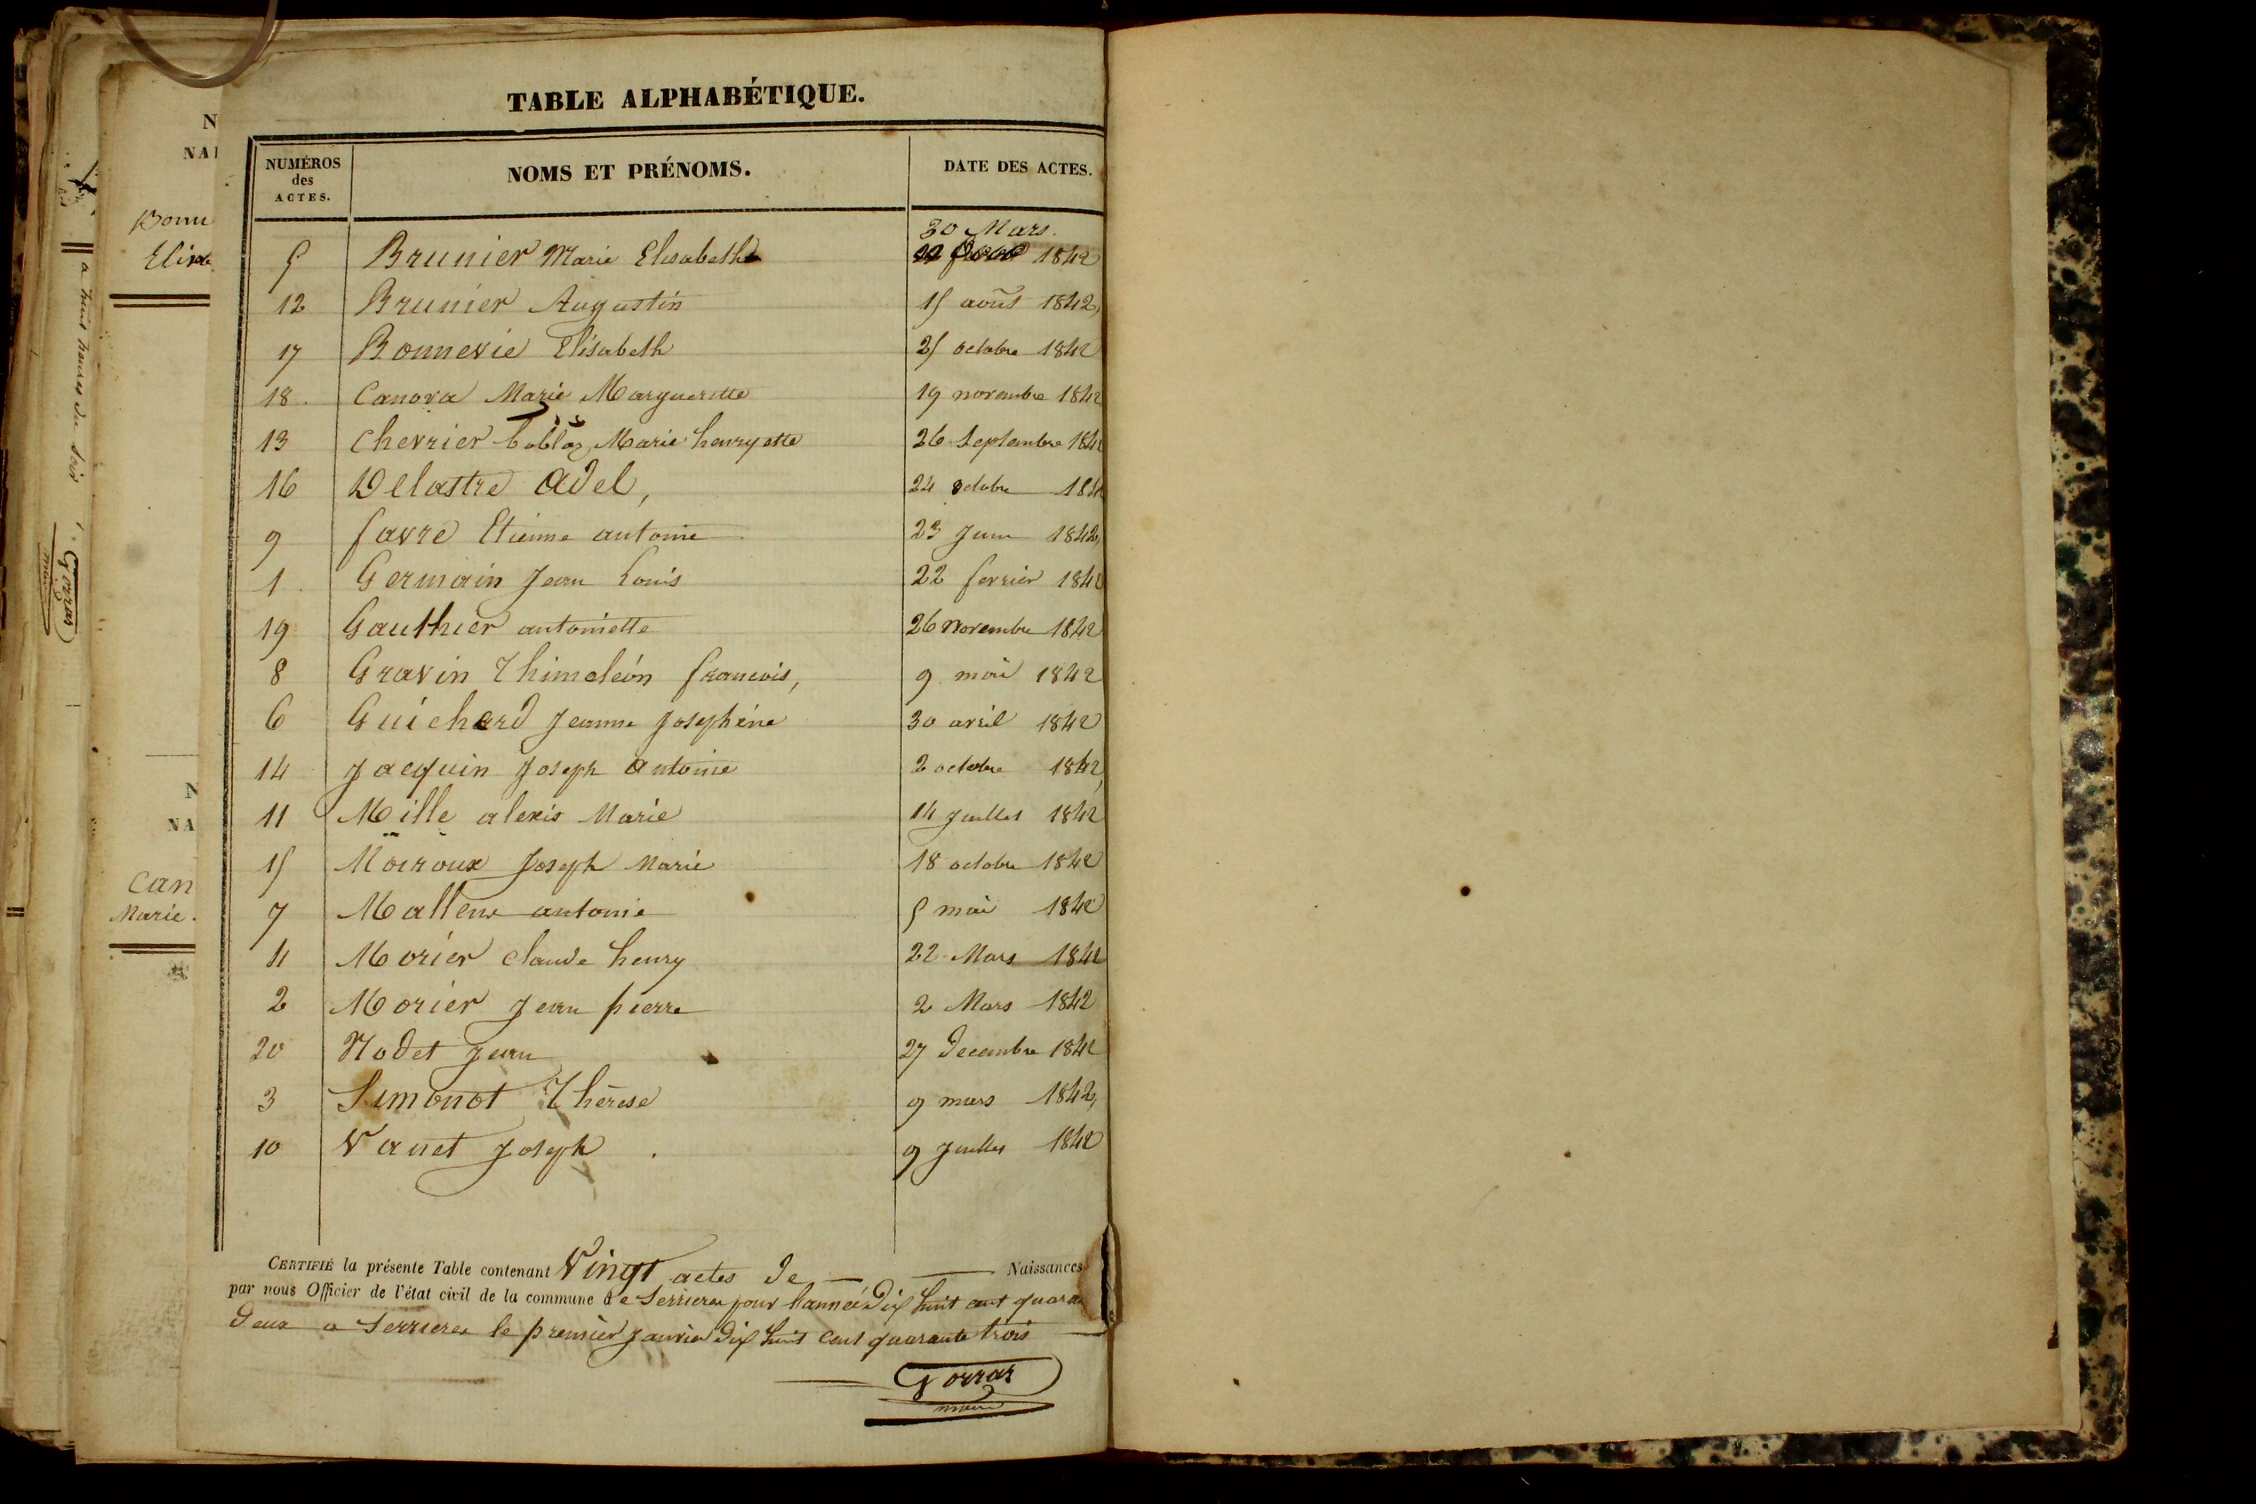 TABLE ALPHABÉTIQUE.
NUMÉROS des ACTES. NOMS ET PRÉNOMS. DATE DES ACTES.
30 Mars.
5 Brunier Marie Elisabeth 1842
12 Brunier Augustin 15 août 1842
17 Bonnevie Elisabeth 25 octobre 1842
18. Canova Marie Margueritte 19 novembre 1842
13 Chevrier Marie henryette 26 Septembre 1842
16 Delastre Adel, 24 octobre 1842
9 favre Etienne antoine 23 Juin 1842
1. Germain Jean Louis 22 fevrier 1842
19 Gauthier antoinette 26 Novembre 1842
8 Gravin Thimoléon francois, 9 mai 1842
6 Guichard Jeanne Joséphine 30 avril 1842
14 Jacquin Joseph antoine 2 octobre 1842
11 Mille alexis Marie 14 Juillet 1842
15 Moiroux Joseph Marie 18 octobre 1842
7 antonie 5 mai 1842
4 Morier claude henry 22 Mars 1842
2 Morier Jean pierre 2 Mars 1842
20 Nodet Jean 27 Decembre 1842
3 Simonot Thérese 9 mars 1842
10 Vanet Joseph 9 Juillet 1842
CERTIFIÉ la présente Table contenant Vingt actes de Naissances
par nous Officier de l'état civil de la commune de Serrieres pour l'année Dix huit cent quaran
Deux a Serrieres le premier Janvier Dix huit cent quarante trois
Gorraz
maire
N
NAI
Bonn
Elisa
N
NA
Can
Marie.
a huit heures du soir
Gorraz
maire